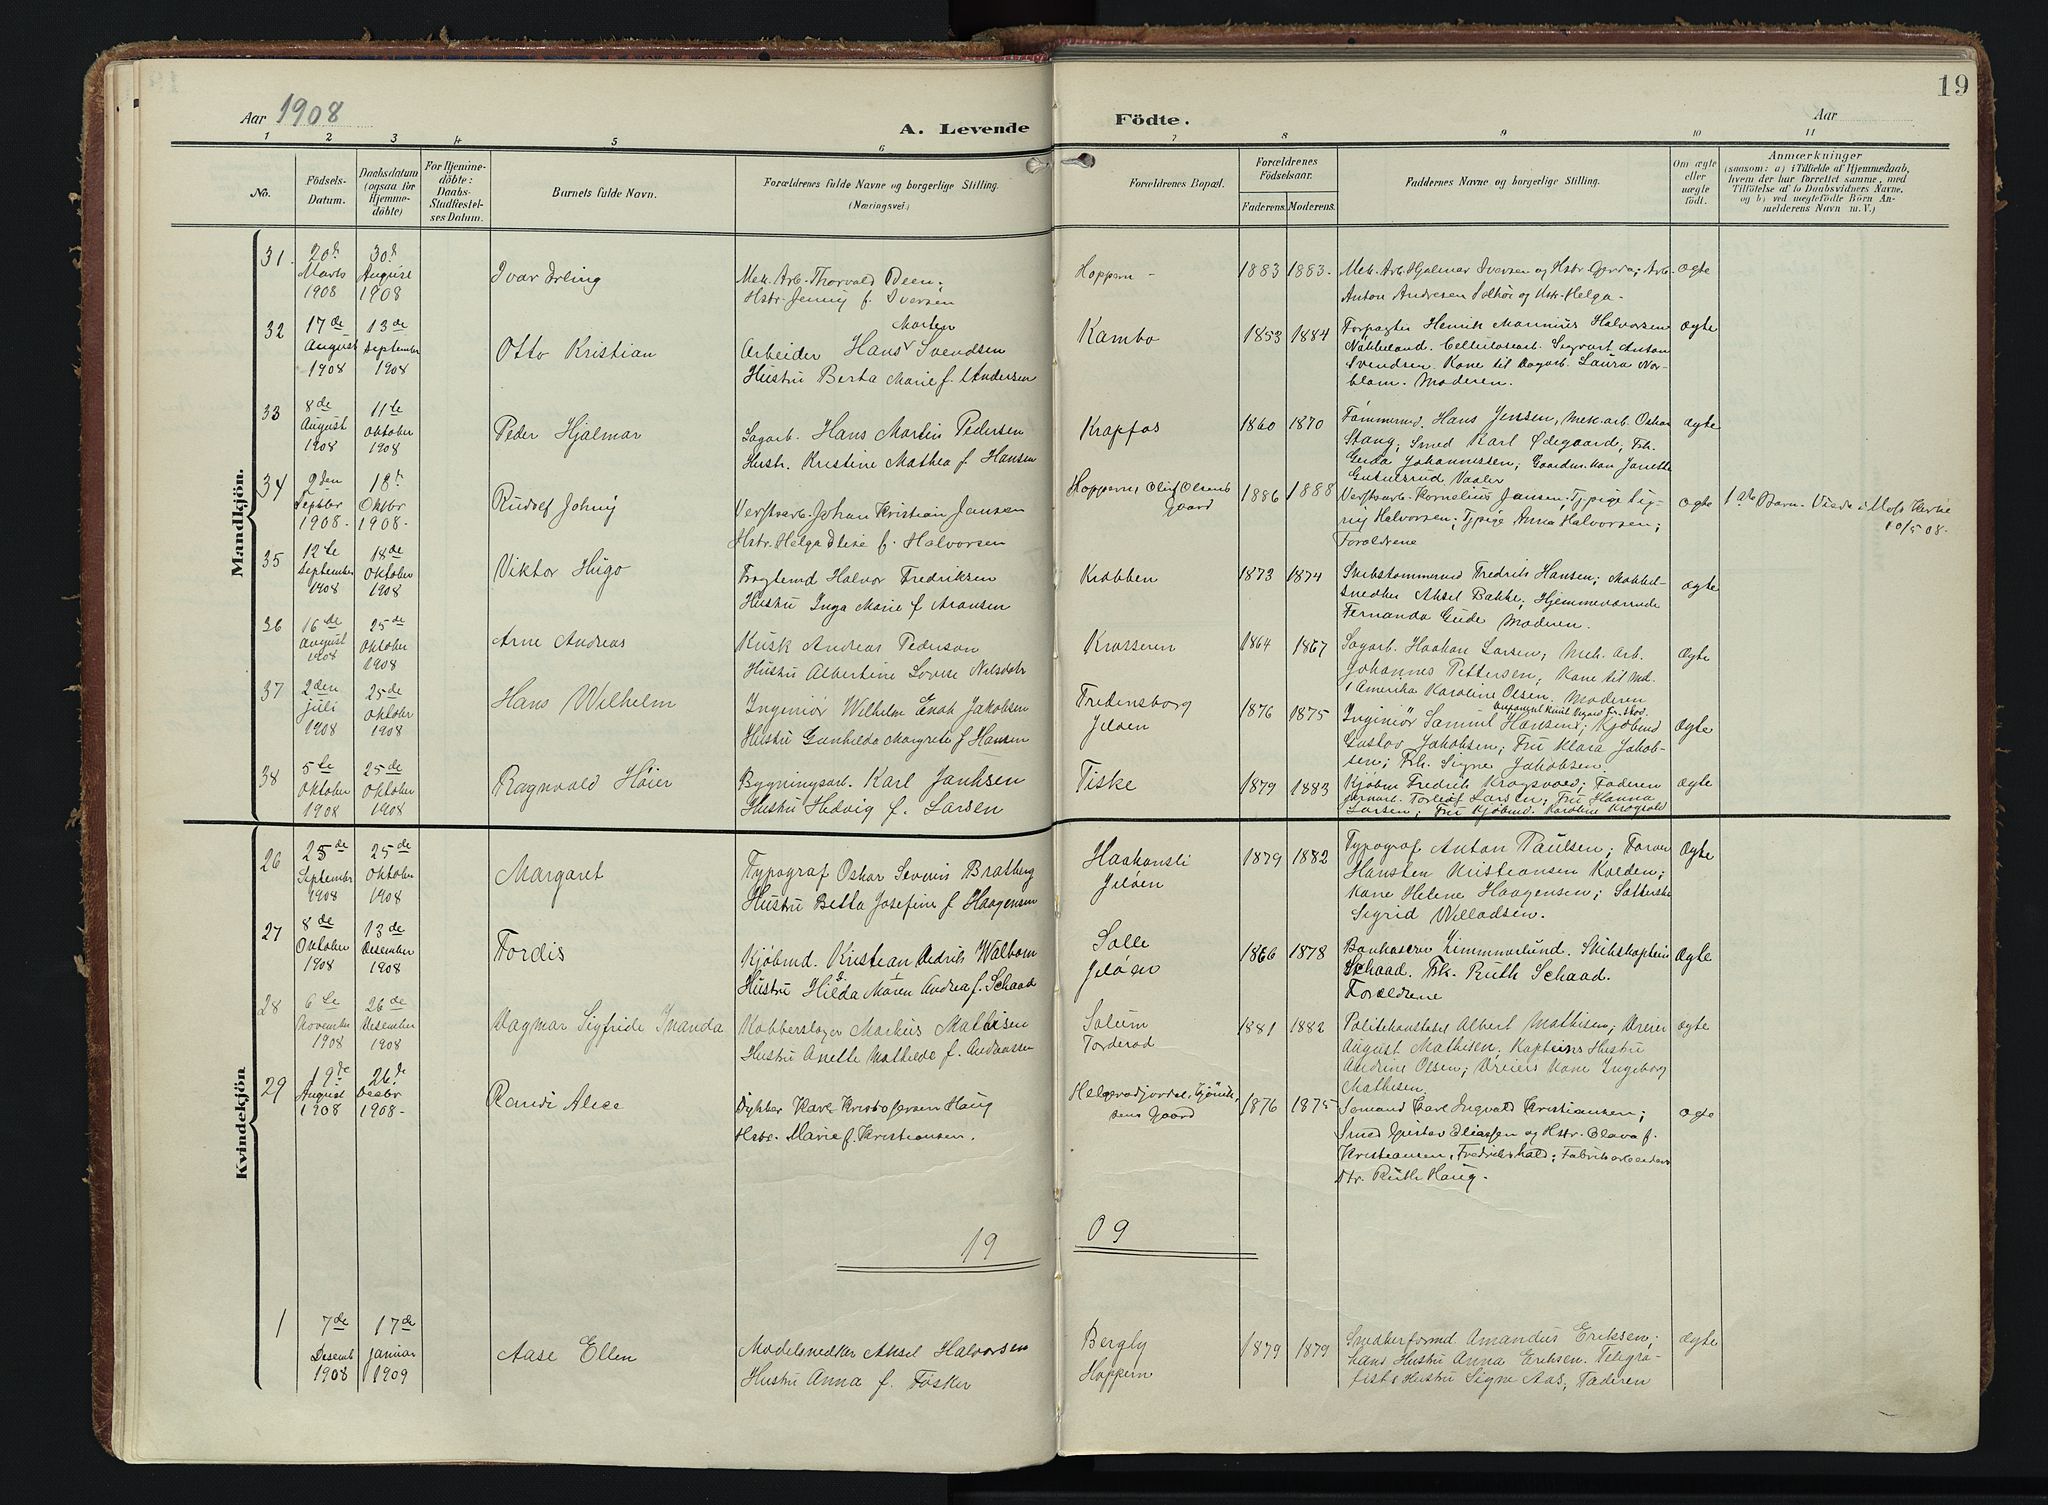 19
Aar 1908
A. Levende Födte.
Aar
1 2 3 4 5 6 7 8 9 10 11
No.
Födsels-Datum.
Daabsdatum (ogsaa for Hjemme-döbte)
For Hjemme-döbte: Daabs-Stadfæstel-ses Datum.
Barnets fulde Navn.
Forældrenes fulde Navne og borgerlige Stilling.
(Næringsvei.)
Forældrenes Bopæl.
Forældrenes Födselsaar.
Faderens. Moderens.
Faddernes Navne og borgerlige Stilling.
Om ægte eller uægte födt.
Anmærkninger
(saasom: a) i Tilfælde af Hjemmedaab,
hvem der har forrettet samme, med
Tilföielse af to Daabsvidners Navne.
og b) ved uægtefödte Börn An-
melderens Navn m. V.)
Mandkjön.
31. 20de Marts 1908 30te August 1908 Ivar Erling
Mek. Arb. Thorvald Deen;
Hstr. Jenny f. Iversen
Hoppern - 1883 1883.
Mek. Arb. Hjalmar Iversen og Hstr. Gerda; Arb.
Anton Andresen Solhöi og Hstr. Helga.
Ægte
32 17de August 1908 13de September 1908 Otto Kristian
Morten
Arbeider Hans Svendsen
Hustru Berta Marie f. Andersen
Kambo 1853 1884
Forpagter Henrik Marinius Halvorsen
Nökkeland. Cellulosearb. Sigvart Anton
Svendsen. Kone til Dagarb. Laura Nor-
blom. Moderen.
Ægte
33 8de August 1908 11te Oktober 1908 Peder Hjalmar
Sagarb. Hans Martin Pedersen
Hustr. Kristine Mathea f. Hansen
Krapfos 1860 1870
Tömmermd. Hans Jensen, Mek. arb. Oskar
Stang; Smed Karl Ødegaard; Frk.
Gerda Johannessen; Gaardm. kone Janette
Gutulsrud Vaaler
Ægte
34 9den Septbr 1908. 18de Oktbr 1908. Rudolf Johny
Verftsarb. Johan Kristian Jansen
Hstr. Helga Elise f. Halvorsen
Hoppern, Oluf Olsens Gaard 1886 1888
Verftsarb. Kornelius Jansen; Tj.pige Sig-
ny Halvorsen; Tj.pige Anna Halvorsen;
Forældrene
Ægte
1ste Barn. Viede i Moss Kirke
10/5 08.
35 12te September 1908 18de Oktober 1908 Viktor Hugo
Fragtemd Halvor Fredriksen
Hustru Inga Marie f. Aronsen
Krabben 1873 1874
Skibstømmermd Fredrik Hansen; Møbbel-
snedker Aksel Bakke; Hjemmeværende
Fernanda Gude Moderen.
Ægte
36 16de August 1908 25de Oktober 1908 Arne Andreas
Kusk Andreas Pederson
Hustru Albertine Lovise Nilsdatr
Krosseren 1864 1867
Sagarb. Haakon Larsen; Mek. arb.
Johannes Pettersen; Kone til Md.
i Amerika Karoline Olsen. Moderen
Ægte
37 2den juli 1908 25de Oktober 1908 Hans Wilhelm
Ingeniör Wilhelm Enok Jakobsen
Hustru Gunhilda Margrete f. Hansen
Fredensborg Jeløen 1876 1875
Ingeniör Samuel Hansen; Kjøbmd
Gustav Jakobsen; Fru Klara Jakob-
sen; Frk. Signe Jakobsen
Ægte
38 5te Oktober 1908 25de Oktober 1908 Ragnvald Høier
Bygningsarb. Karl Janksen
Hustru Hedvig f. Larsen
Tiske 1879 1883
Kjøbm Fredrik Krogsvold; Faderen
Jernarb. Torleif Larsen; Fru Hanna
Larsen; Fru Kjøbmd. Karoline Krogsvold
Ægte
Kvindekjön
26 25de September 1908 25de Oktober 1908 Margaret
Typograf Oskar Severin Bratberg
Hustru Betta Josefine f. Haagensen
Haakonsli Jeløen 1879 1882
Typograf Anton Paulsen; Farver
Hansten Kristiansen Kolden;
Kone Helene Haagensen; Sætterske
Sigrid Willadsen.
Ægte
27 8de Oktober 1908 13de Desember 1908 Tordis
Kjøbmd. Kristian Didrik Walbom
Hustru Hilda Maren Andrea f. Schaad
Salle Jeløen 1866 1878
Bankkasserer Zimmerlund. Skibskaptein
Schaad. Frk. Ruth Schaad.
Forældrene
Ægte
28 6te November 1908 26de Desember 1908 Dagmar Sigfride Inanda
Kobberslager Markus Mathisen
Hustru Anette Mathilde f. Andreassen
Solum Torderød 1881 1882
Politikonstabel Albert Mathisen; Dreier
August Mathisen; Kapteins Hustru
Andrine Olsen; Dreiers Kone Ingeborg
Mathisen.
Ægte
29 19de August 1908 26de Decbr 1908. Randi Alice
Dykker Karl Kristofersen Haug
Hstr. Marie f. Kristiansen.
Helgerødjordet 1876 1875
Sømand Carl Ingvald Kristiansen;
Smed Gustav Eliassen og Hstr. Olava f.
Kristiansen, Fredrikshald; Fabrikarbeiders
Htr. Ruth Haug.
Ægte
19 09
1 7de Desemb 1908 17de januar 1909 Aase Ellen
Modelsnedker Aksel Halvorsen
Hustru Anna f. Tøsker
Bergly Hoppern 1879 1879
Snedkerformd Amandus Eriksen;
hans Hustru Anna Eriksen. Telegra-
fists Hustru Signe Aas; Faderen
Ægte